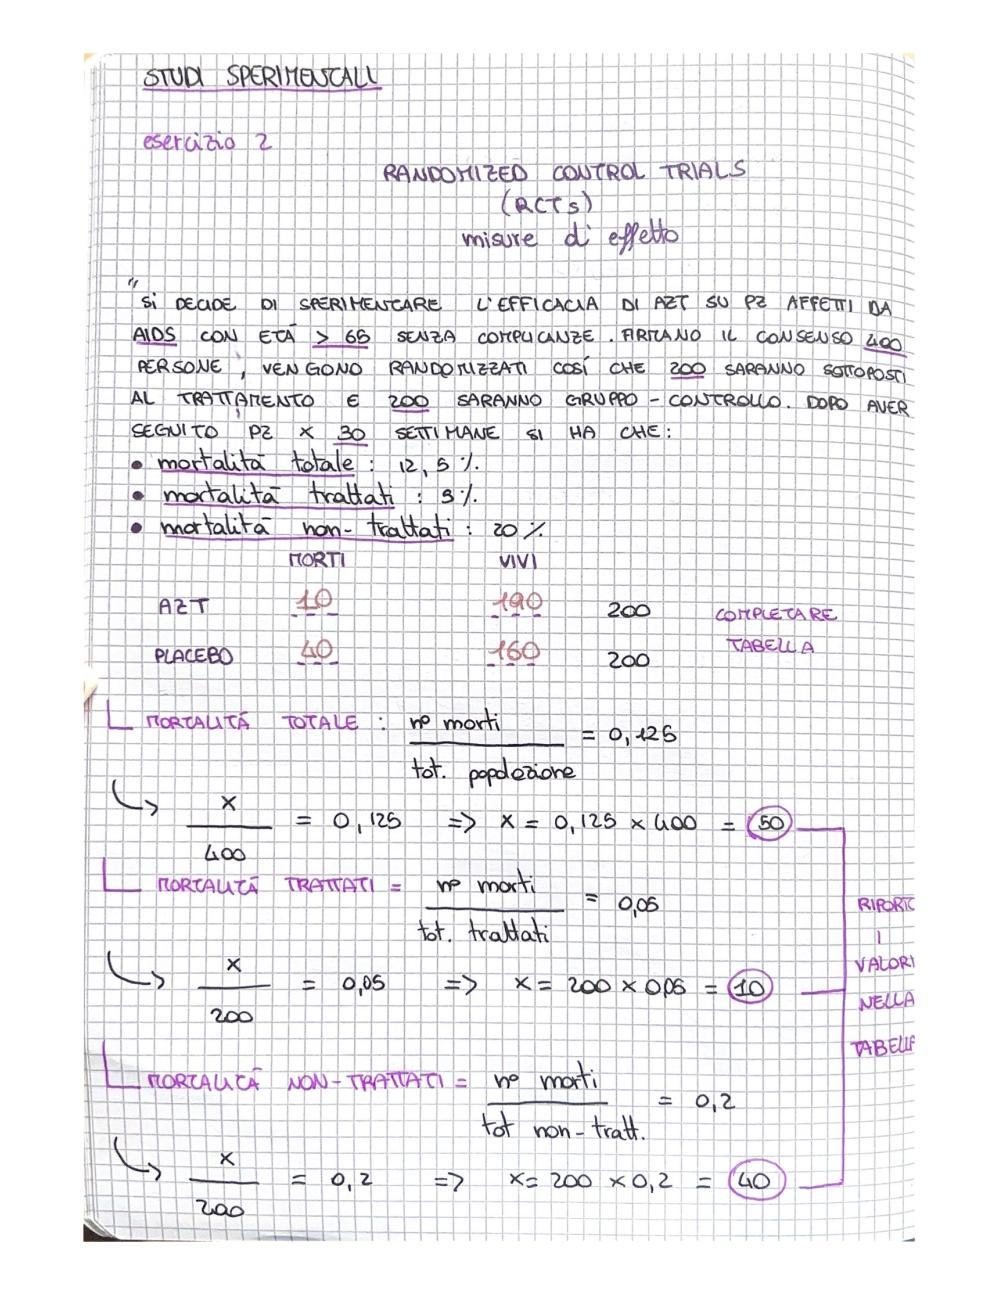 STUDI SPERIMENTALI
esercizio 2
RANDOMIZED CONTROL TRIALS
(RCTs)
misure di effetto
"Si DECIDE DI SPERIMENTARE L'EFFICACIA DI AZT SU PZ AFFETTI DA
AIDS CON ETÀ > 65 SENZA COMPLICANZE. FIRMANO IL CONSENSO 400
PERSONE, VENGONO RANDOMIZZATI COSÍ CHE 200 SARANNO SOTTOPOSTI
AL TRATTAMENTO E 200 SARANNO GRUPPO-CONTROLLO. DOPO AVER
SEGUITO PZ X 30 SETTIMANE SI HA CHE:
• mortalità totale : 12,5 %.
• mortalità trattati : 5 %.
• mortalità non-trattati : 20 %
MORTI VIVI
AZT 10 190 200 COMPLETARE
TABELLA
PLACEBO 40 160 200
MORTALITÁ TOTALE : n° morti / tot. popolazione = 0,125
x / 400 = 0,125 => x = 0,125 x 400 = 50
MORTALITÁ TRATTATI = n° morti / tot. trattati = 0,05
RIPORTO
I
VALORI
NELLA
TABELLA
x / 200 = 0,05 => x = 200 x 0,05 = 10
MORTALITÁ NON-TRATTATI = n° morti / tot non-tratt. = 0,2
x / 200 = 0,2 => x = 200 x 0,2 = 40